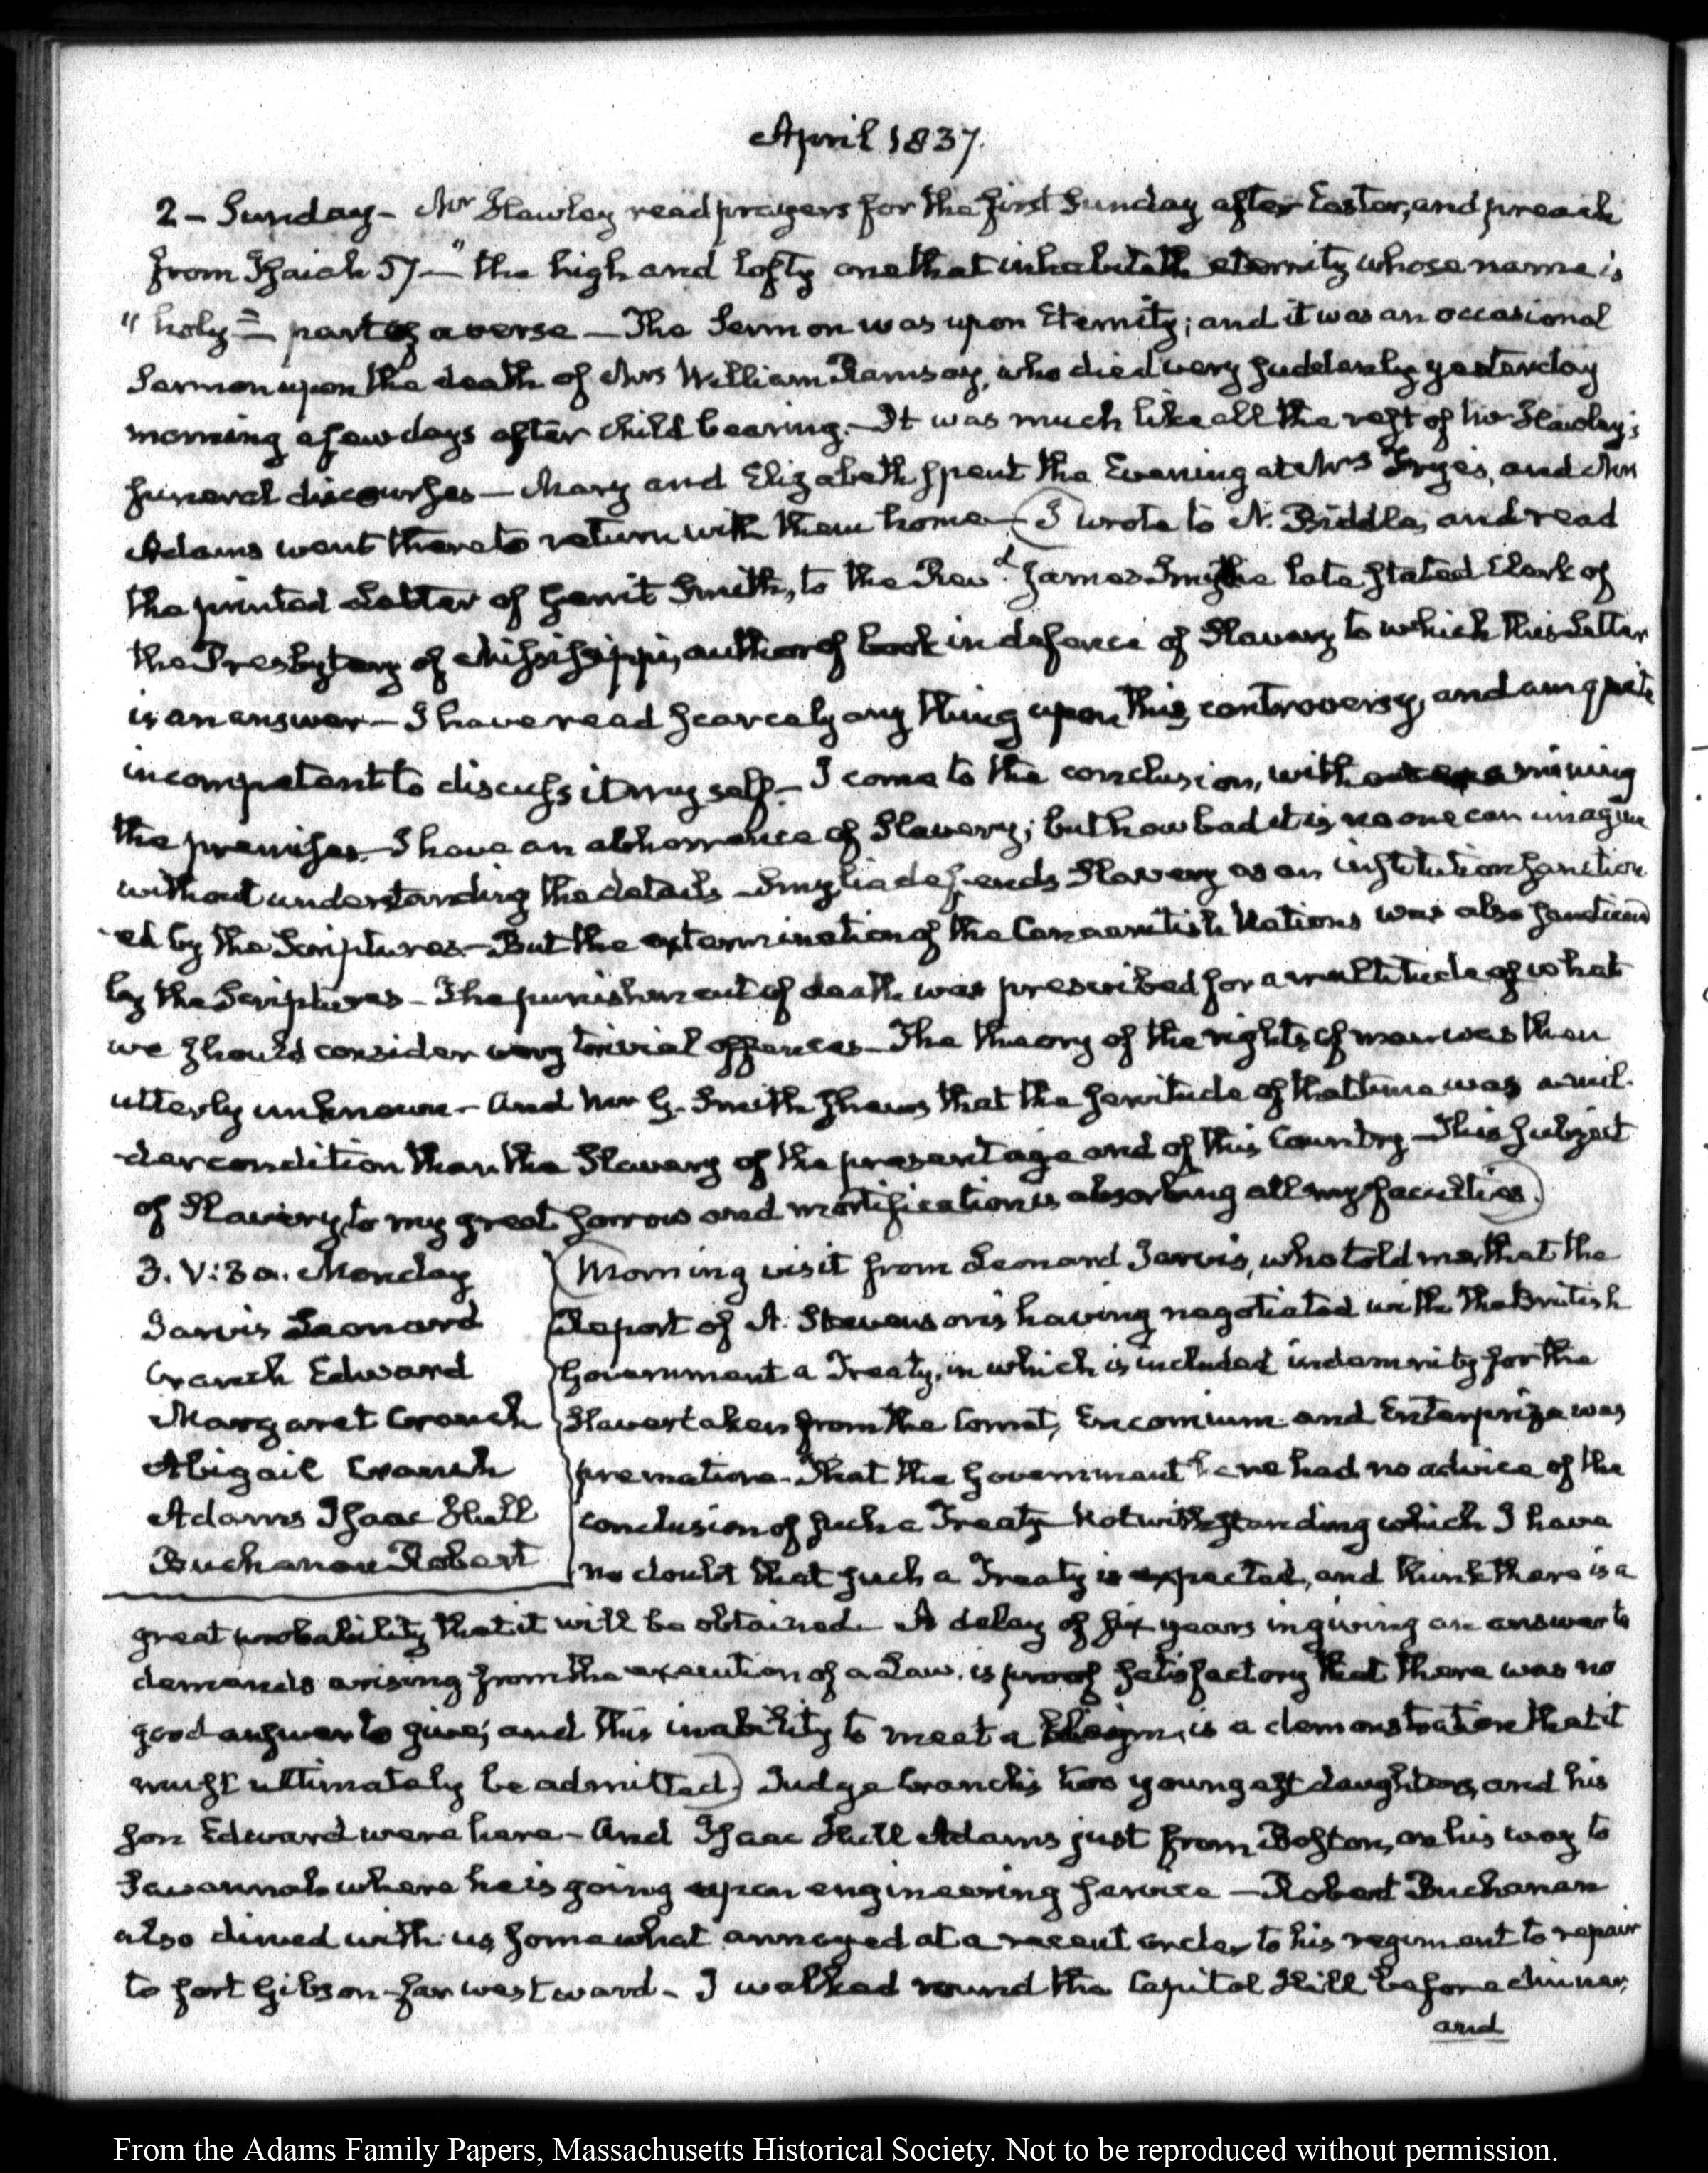 April 1837.
2 - Sunday - Mr Hawley read prayers for the first Sunday after Easter, and preach
from Isaiah 57 - "the high and lofty one that inhabiteth eternity whose name is
"holy" - part of a verse - The Sermon was upon Eternity; and it was an occasional
Sermon upon the death of Mrs William Ramsay, who died very suddenly yesterday
morning a few days after child bearing. - It was much like all the rest of Mr Hawley's
funeral discourses - Mary and Elizabeth spent the Evening at Mrs Frye's, and Mrs
Adams went there to return with them home - (I wrote to N. Biddle, and read
the printed Letter of Gerrit Smith, to the Revd. James Smylie late stated Clerk of
the Presbytery of Mississippi, author of book in defence of Slavery to which this Letter
is an answer - I have read scarcely any thing upon this controversy, and am quite
incompetent to discuss it myself - I come to the conclusion, without examining
the premises. I have an abhorrence of Slavery; but how bad it is no one can imagine
without understanding the details - Smylie defends Slavery as an institution sanction
ed by the Scriptures - But the extermination of the Canaanitish Nations was also sanctioned
by the Scriptures - The punishment of death was prescribed for a multitude of what
we should consider very trivial offences - The theory of the rights of man was then
utterly unknown - And Mr G. Smith shews that the servitude of that time was a mil-
der condition than the Slavery of the present age and of this Country - This subject
of Slavery, to my great sorrow and mortification is absorbing all my faculties.)
3. V:30. Monday
Jarvis Leonard
Cranch Edward
Margaret Cranch
Abigail Cranch
Adams Isaac Hull
Buchanan Robert
(Morning visit from Leonard Jarvis, who told me that the
Report of A. Stevenson's having negotiated with the British
Government a Treaty, in which is included indemnity for the
Slaves taken from the Comet, Encomium and Enterprize was
premature - That the Government here had no advice of the
conclusion of such a Treaty - Notwithstanding which I have
no doubt that such a Treaty is expected, and think there is a
great probability that it will be obtained. A delay of six years in giving an answer to
demands arising from the execution of a Law, is proof satisfactory that there was no
good answer to give; and this inability to meet a claim, is a demonstration that it
must ultimately be admitted.) Judge Cranch's two youngest daughters, and his
son Edward were here - And Isaac Hull Adams just from Boston, on his way to
Savannah where he is going upon engineering service - Robert Buchanan
also dined with us somewhat annoyed at a recent order to his regiment to repair
to fort Gibson far westward - I walked round the Capitol Hill before dinner,
and
From the Adams Family Papers, Massachusetts Historical Society. Not to be reproduced without permission.